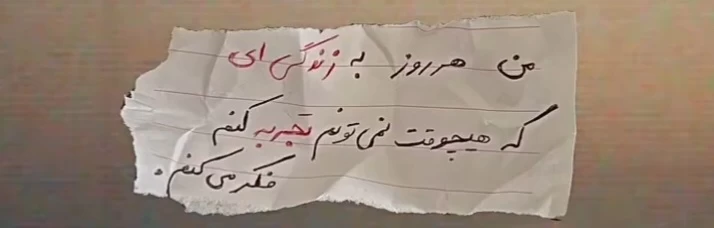 من هر روز به زندگی ای
که هیچوقت نمی تونم تجربه کنم
فکر می کنم.